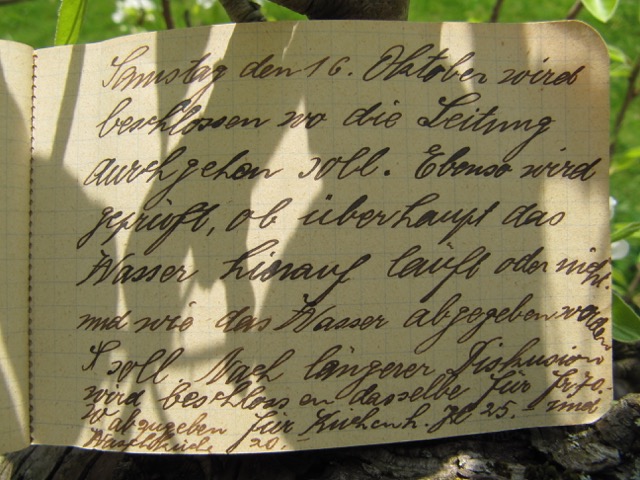 Samstag den 16. Oktober wird
beschlossen wo die Leitung
durchgehen soll. Ebenso wird
geprüft, ob überhaupt das
Wasser hierauf läuft oder nicht.
und wie das Wasser abgegeben werden
soll. Nach längerer Diskusion
wird beschlossen dasselbe für
abzugeben für Küchenh. 25.– und
Waschküche 20.